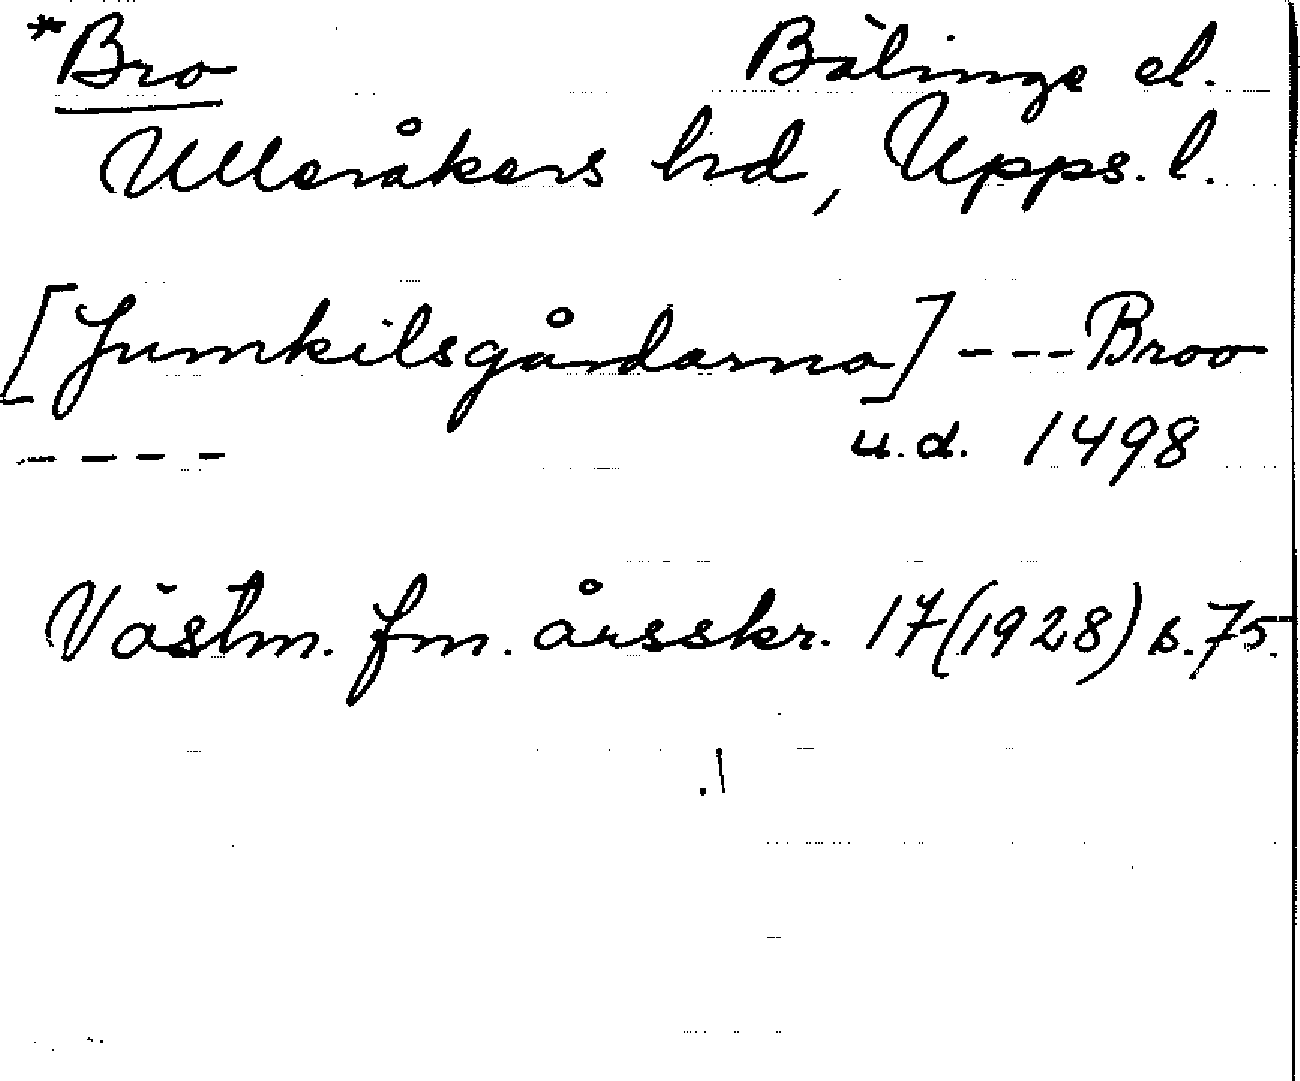 *Bro Bälinge el.
Ulleråkers hd, Upps. l.
[Jumkilsgårdarna] --- Broo
---- u.d. 1498
Västm. fm. årsskr. 17 (1928) s. 75.